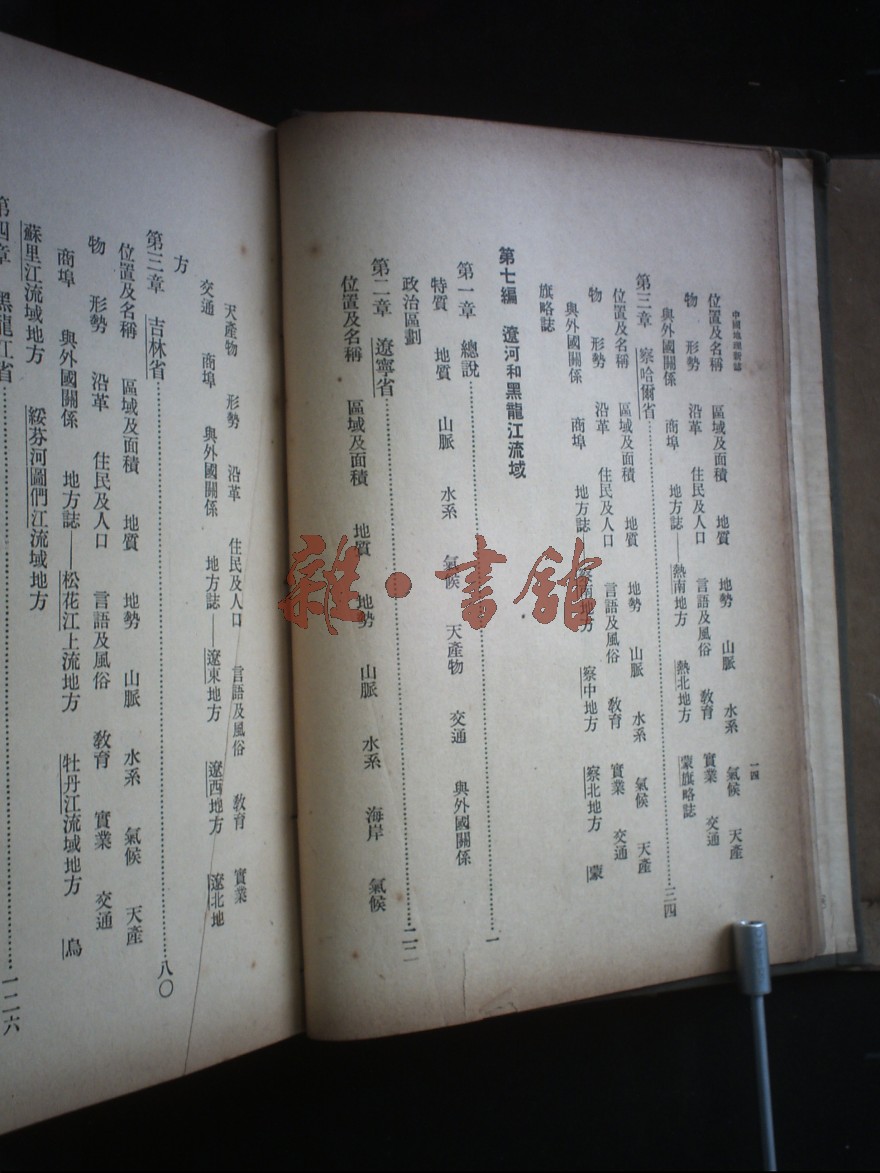 中國地理新誌
一四
位置及名稱 區域及面積 地質 地勢 山脈 水系 氣候 天產
物 形勢 沿革 住民及人口 言語及風俗 敎育 實業 交通
與外國關係 商埠 地方誌——熱南地方 熱北地方 蒙旗略誌
第三章 察哈爾省……三四
位置及名稱 區域及面積 地質 地勢 山脈 水系 氣候 天產
物 形勢 沿革 住民及人口 言語及風俗 敎育 實業 交通
與外國關係 商埠 地方誌——察南地方 察中地方 察北地方 蒙
旗略誌
第七編 遼河和黑龍江流域
第一章 總說……一
特質 地質 山脈 水系 氣候 天產物 交通 與外國關係
政治區劃
第二章 遼寧省……二二
位置及名稱 區域及面積 地質 地勢 山脈 水系 海岸 氣候
天產物 形勢 沿革 住民及人口 言語及風俗 敎育 實業
交通 商埠 與外國關係 地方誌——遼東地方 遼西地方 遼北地
方
第三章 吉林省……八〇
位置及名稱 區域及面積 地質 地勢 山脈 水系 氣候 天產
物 形勢 沿革 住民及人口 言語及風俗 敎育 實業 交通
商埠 與外國關係 地方誌——松花江上流地方 牡丹江流域地方 烏
蘇里江流域地方 綏芬河圖們江流域地方
第四章 黑龍江省……一二六
雜·書舘